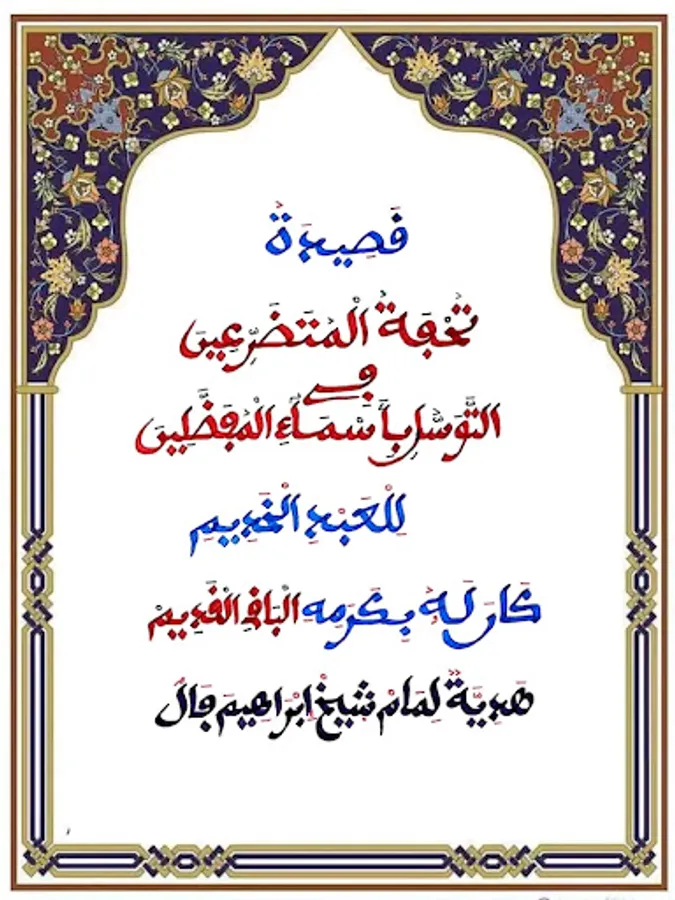 قَصِيدَةُ
تُحْفَةُ الْمُتَضَرِّعِينَ
فِي
التَّوَسُّلِ بِأَسْمَاءِ الْمُفَضَّلِينَ
لِلْعَبْدِ الْخَدِيمِ
كَانَ لَهُ بِكَرَمِهِ الْبَاقِي الْقَدِيمْ
هَدِيَّةٌ لِمَامْ شَيْخْ إِبْرَاهِيمَ فَالْ